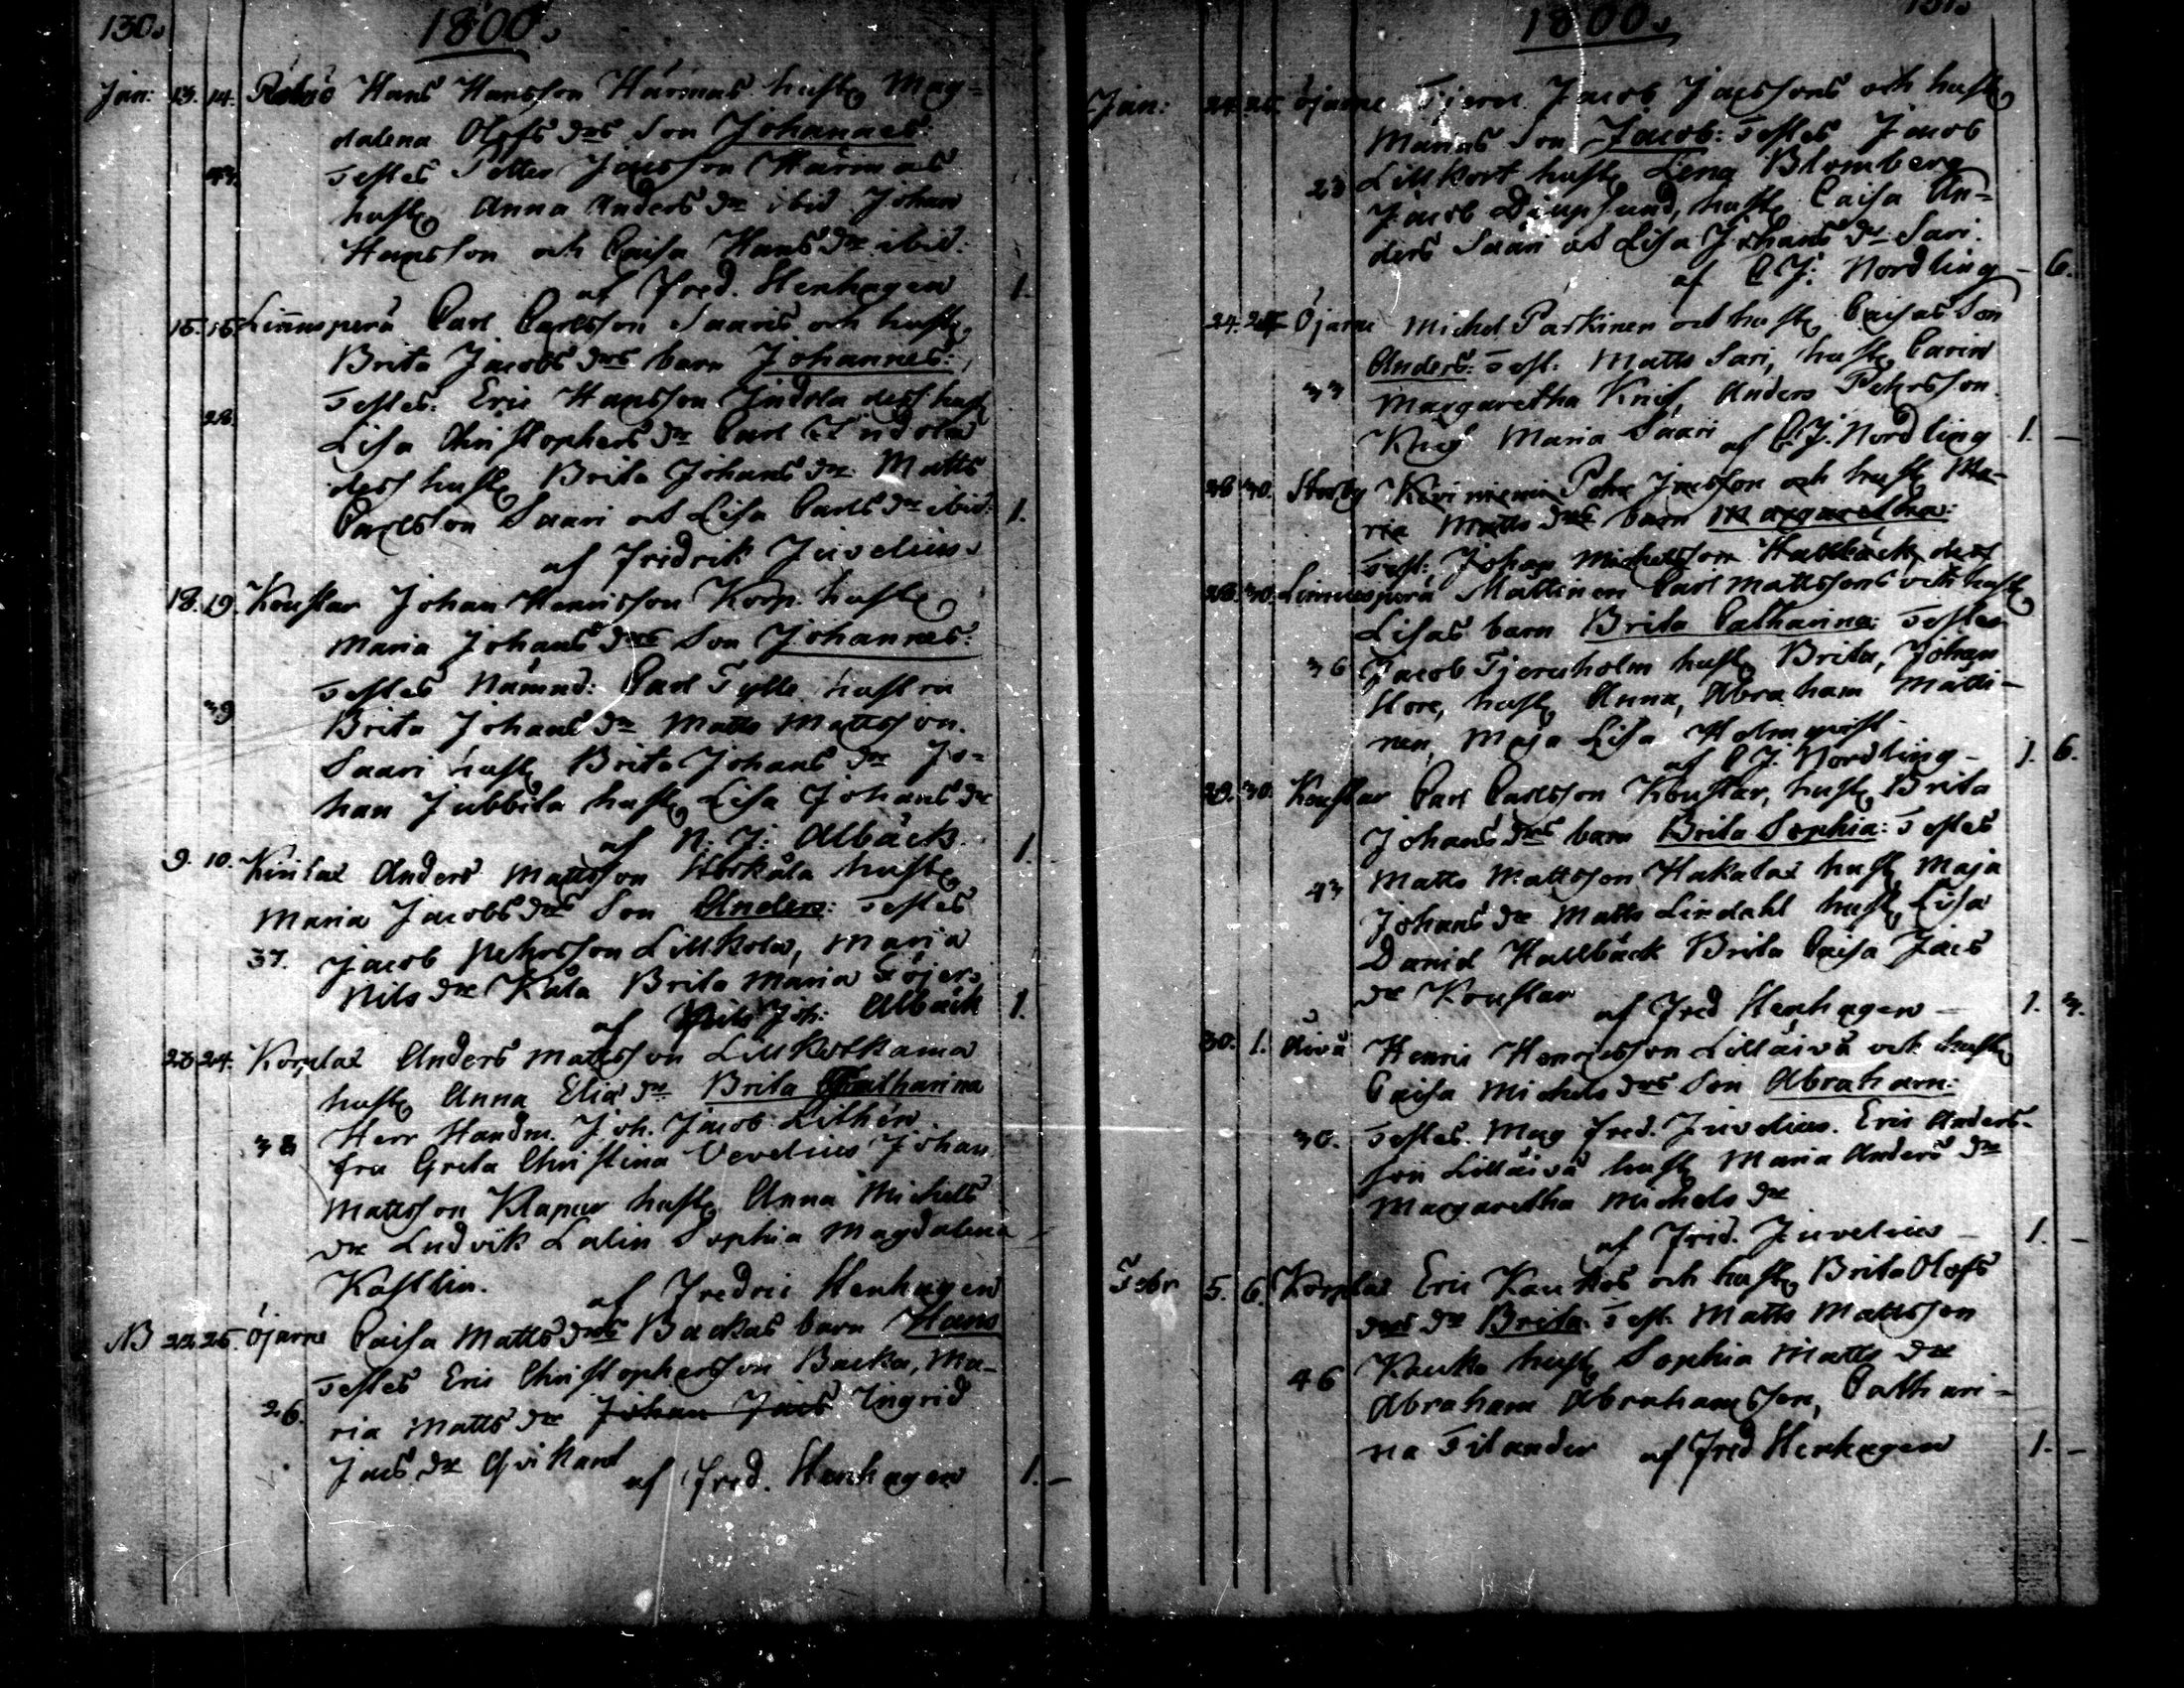 130.
1800.
Jan: 13. 14. Rekiö Hans Hansson Härmas hustr Mag=
dalena Olofs drs Son Johannes:
Testes Petter Jacsson Härmas
hustr Anna Anders dr ibid Johan
Hansson och Caisa Hans dr ibid:
af Fred. Stenhagen 1.
15. 16. Linnuspera Carl Carlsson Saaris och hustr
Brita Jacobs drs barn Johannes:
Testes: Eric Hansson Jindola dess hust
28
Lisa Christophers dr Carl Jindola
dess hustr Brita Johans dr Matts
Carlsson Saari och Lisa Carls dr ibid: 1.
af Fridrik Juvelius
18. 19. Koustar Johan Henricsson Korp. hustr
Maria Johans drs Son Johannes:
Testes Nämnd: Carl Tylli hustru
39
Brita Johans dr Matts Mattsson
Saari hustr Brita Johans dr Jo=
han Jubbila hustr Lisa Johans dr
af N: J: Albäck. 1.
9. 10. Kirilax Anders Mattsson Storkåla hustr
Maria Jacobs drs Son Anders: Testes
37. Jacob Pehrsson Lillkola, Maria
Nils dr Kåla Brita Maria Höjer
af Nils Joh: Albäck 1.
23 24. Korplax Anders Mattsson Lillkotkama
hustr Anna Elia dr Brita Catharina
Herr Handm. Joh. Jacob Lithén
38
fru Greta Christina Vevelius Johan
Mattsson Klapur hustr Anna Michels
dr Ludvik Lalin Sophia Magdalena
Kastlin. af Fredric Stenhagen
NB 22 25. Öjarne Caisa Matts drs Backas barn Hans
Testes Eric Christophersson Backa, Ma=
26. ria Matts dr Johan Jacs Ingrid
Jacs dr Qvikant
af Fred. Stenhagen 1. –
1800.
131.
Jan: 24. 25. Öjarne Tjern Jacob Jacssons och hustr
Marias Son Jacob: Testes Jacob
23 Lillkort hustr Lena Blomberg
Jacob Djupsund, hustr Caisa An=
ders Saari och Lisa Johans dr Sari.
af C J: Nordling – 6.
24. 25 Öjarne Michel Parkinen och hustr Caisas Son
Anders: Test. Matts Sari, hustr Carin
33 Margaretha Knif, Anders Pehrsson
Knif Maria Saari af C. J. Nordling 1. –
28 30. Storby Keriniemi Pehr Jacsson och hustr Ma=
ria Matts drs barn Margaretha:
Test: Johan Michelsson Hallbäck, dess
28. 30. Linnuspera Mattinen Carl Mattssons och hustr
Lisas barn Brita Catharina: Testes
36 Jacob Tjerenholm hustr Brita, Johan
Store, hustr Anna, Abraham Matti=
nen, Maja Lisa Holmqvist
af C J. Nordling – 1. 6.
29. 30. Koustar Carl Carlsson Koustar, hustr Brita
Johans drs barn Brita Sophia: Testes
43 Matts Mattsson Hakalax hustr Maja
Johans dr Matts Lindahl hustr Lisa
Daniel Hallbäck Brita Caisa Jacs
dr Koustar
af Fred Stenhagen – 1. 3.
30. 1. Aivå Henric Henricsson Lilläivå och hustr
Caisa Michels drs Son Abraham:
30. Testes. Mag Fred. Juvelius. Eric Anders=
son Lilläivå hustr Maria Anders dr
Margaretha Michels dr
af Frid. Juvelius – 1. –
Febr 5. 6. Korplax Eric Kaukos och hustr Brita Olofs
drs dr Brita: Test. Matts Mattsson
46 Kauko hustr Sophia Matts dr
Abraham Abrahamsson, Cathari=
na Filander af Fred Stenhagen 1. –